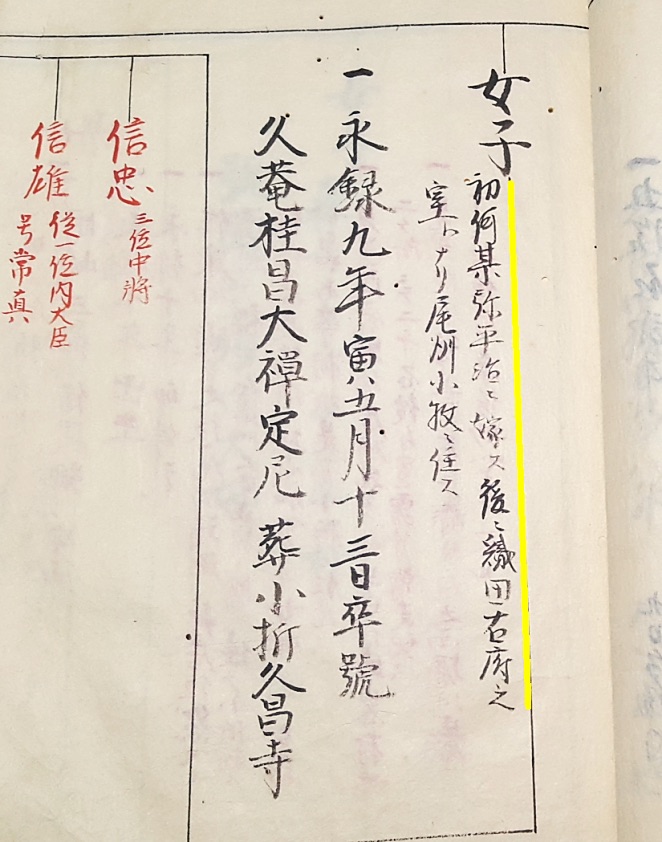 女子
初何某弥平治ニ嫁ス後ニ織田右府之
室トナリ尾州小牧ニ住ス
一永録九年寅五月十三日卒號
久菴桂昌大禪定尼 葬小折久昌寺
信忠 三位中將
信雄 從一位内大臣
号常真